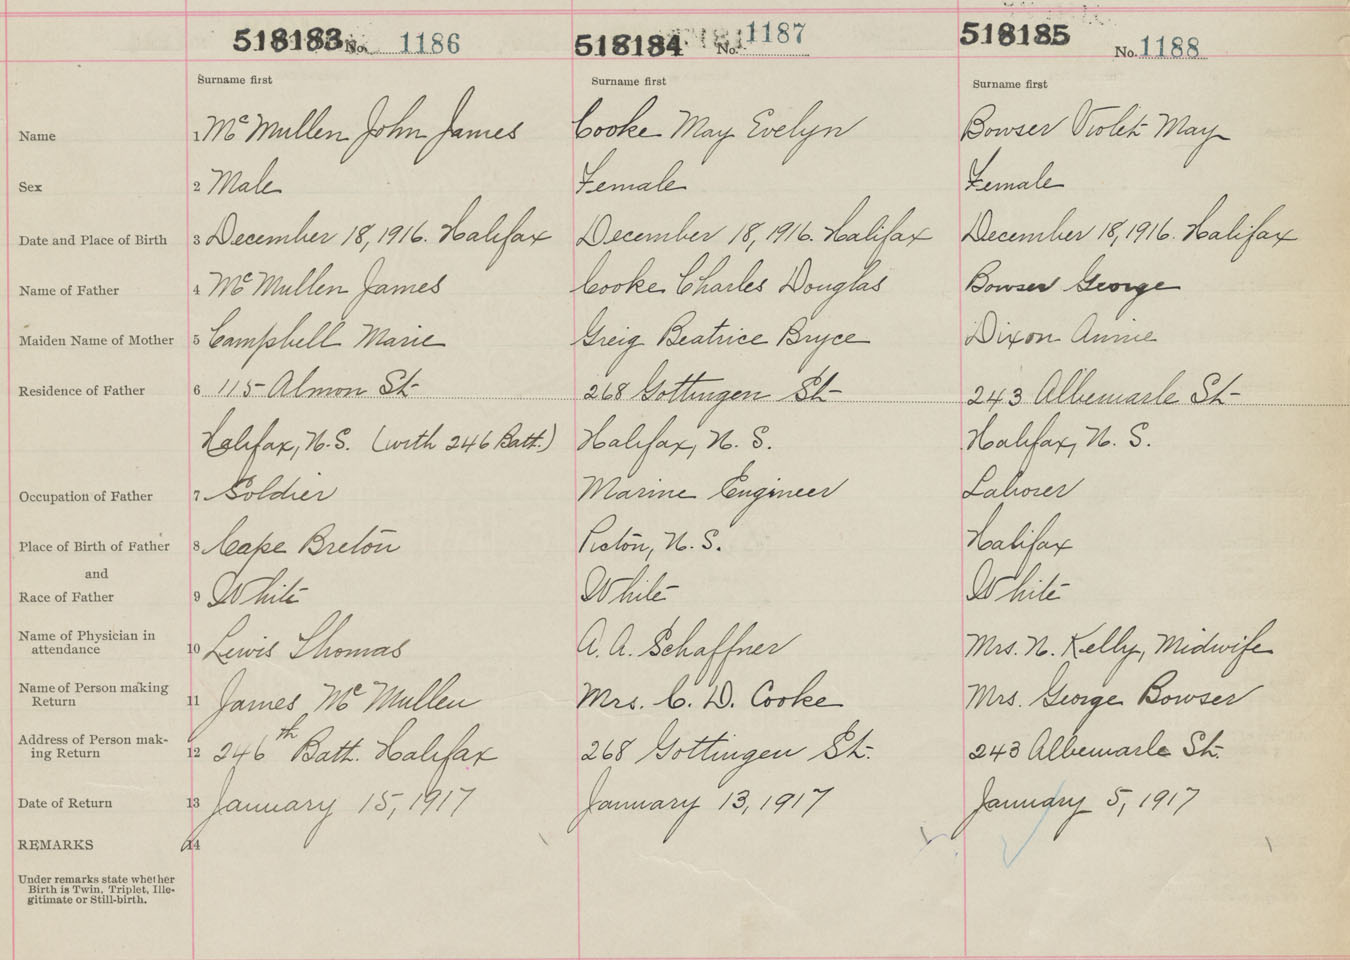 518183 No. 1186 518184 No. 1187 518185 No. 1188
Surname first Surname first Surname first
Name 1 McMullen John James Cooke May Evelyn Bowser Violet May
Sex 2 Male Female Female
Date and Place of Birth 3 December 18, 1916. Halifax December 18, 1916. Halifax December 18, 1916. Halifax
Name of Father 4 McMullen James Cooke Charles Douglas Bowser George
Maiden Name of Mother 5 Campbell Marie Greig Beatrice Bryce Dixon Annie
Residence of Father 6 115 Almon St 268 Gottingen St 243 Albemarle St
Halifax, N.S. (with 246 Batt.) Halifax, N. S. Halifax, N. S.
Occupation of Father 7 Soldier Marine Engineer Laborer
Place of Birth of Father 8 Cape Breton Picton, N. S. Halifax
and
Race of Father 9 White White White
Name of Physician in
attendance 10 Lewis Thomas A. A. Schaffner Mrs. N. Kelly, Midwife
Name of Person making
Return 11 James McMullen Mrs. C. D. Cooke Mrs. George Bowser
Address of Person mak-
ing Return 12 246th Batt. Halifax 268 Gottingen St. 243 Albemarle St.
Date of Return 13 January 15, 1917 January 13, 1917 January 5, 1917
REMARKS 14
Under remarks state whether
Birth is Twin, Triplet, Ille-
gitimate or Still-birth.